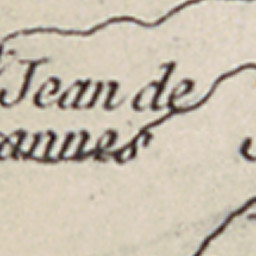 Jean de
annes